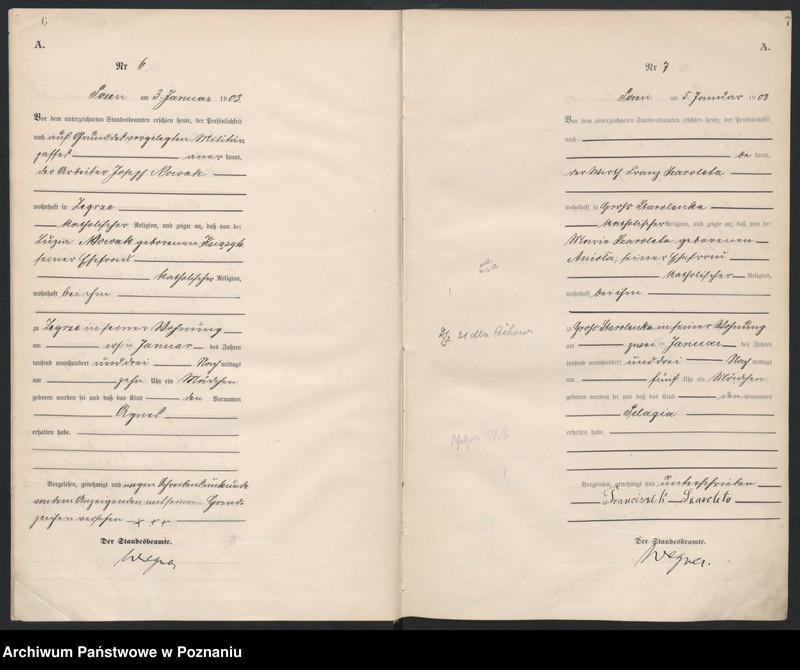 6
A.
Nr 6
Posen am 3. Januar 1903.
Vor dem unterzeichneten Standesbeamten erschien heute, der Persönlichkeit
nach auf Grund des vorgelegten Militär
passes anerkannt,
der Arbeiter Joseph Nowak
wohnhaft in Zegrze
katholischer Religion, und zeigte an, daß von der
Luzia Nowak geborenen
seiner Ehefrau
katholischer Religion,
wohnhaft bei ihm
zu Zegrze in seiner Wohnung
am ersten Januar des Jahres
tausend neunhundert und drei Nachmittags
um zehn Uhr ein Mädchen
geboren worden sei und daß das Kind den Vornamen
Agnes
erhalten habe.
Vorgelesen, genehmigt und wegen Schreibensunkunde
von dem Anzeigenden mit seinem Hand-
zeichen versehen + + +
Der Standesbeamte.
Wegner
7
A.
Nr 7
Posen am 5. Januar 1903
Vor dem unterzeichneten Standesbeamten erschien heute, der Persönlichkeit
nach
bekannt,
der Wirth Franz Szaroleta
wohnhaft in Groß Starolenka
katholischer Religion, und zeigte an, daß von der
Maria Szaroleta geborenen
Aniola, seiner Ehefrau
katholischer Religion,
wohnhaft bei ihm
zu Groß Starolenka in seiner Wohnung
am zweiten Januar des Jahres
tausend neunhundert und drei Nachmittags
um fünf Uhr ein Mädchen
geboren worden sei und daß das Kind den Vornamen
Pelagia
erhalten habe.
Vorgelesen, genehmigt und unterschrieben
Franciszek Szaroleta
Der Standesbeamte.
Wegner.
Archiwum Państwowe w Poznaniu